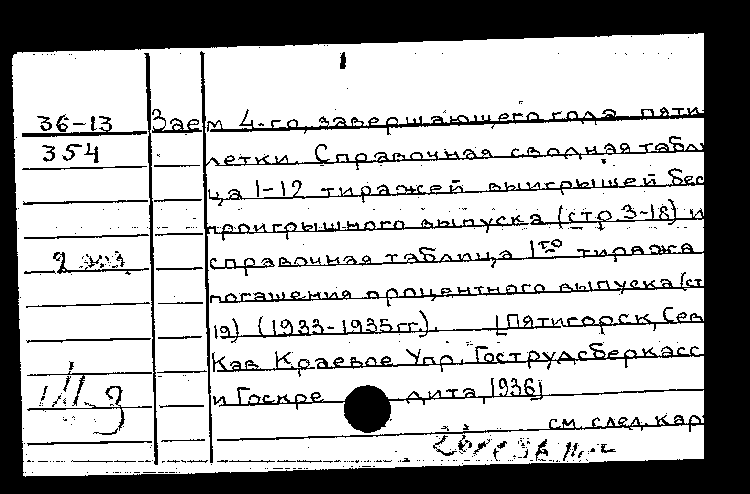 36-13 Заем 4-го, завершающего года пяти-
354 летки. Справочная сводная табли
ца 1-12 тиражей выигрышей бес
проигрышного выпуска (стр. 3-18) и
справочная таблица 1го тиража
погашения процентного выпуска (ст
19) (1933-1935 гг.). [Пятигорск, Сев
Кав. Краевое Упр. Гострудсберкасс
и Госкре дита, 1936]
см. след. кар